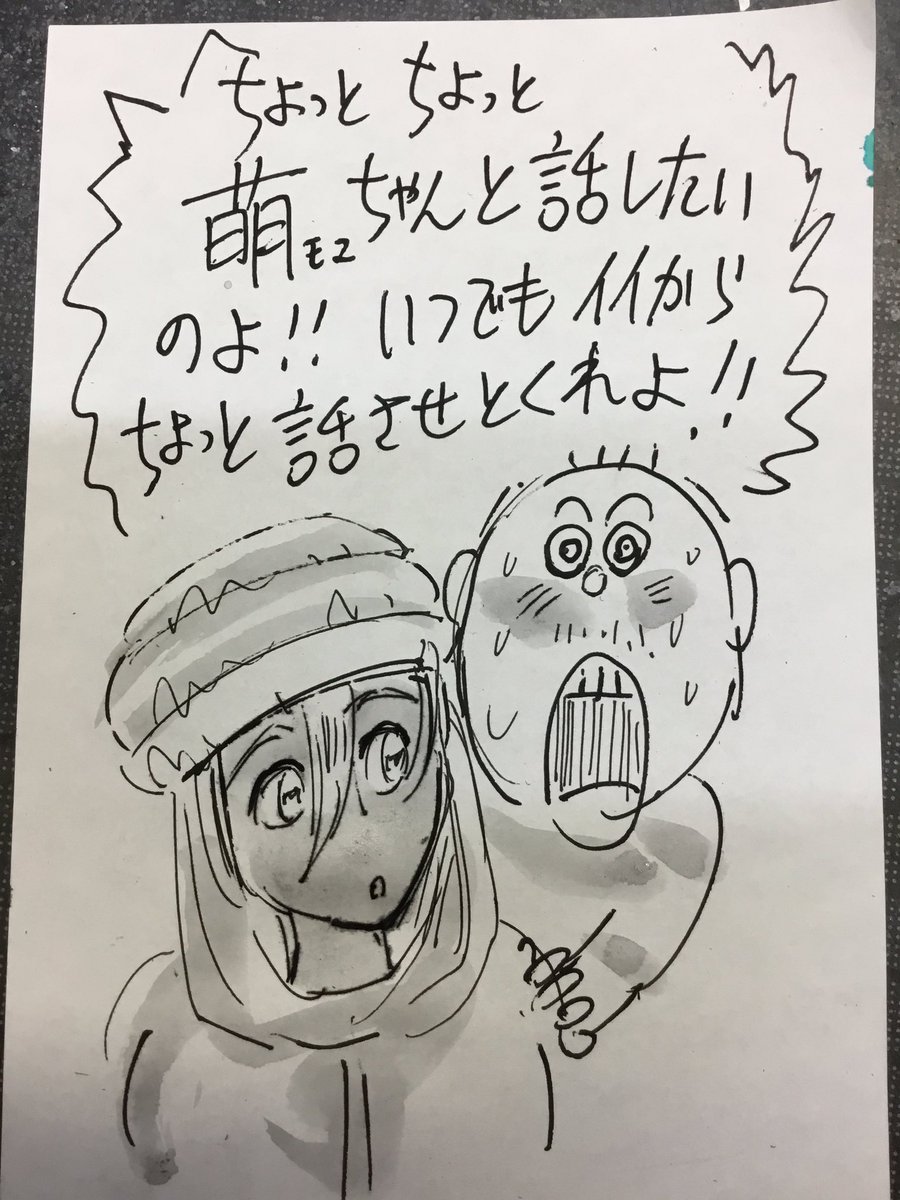 ちょっと ちょっと
萌モユちゃんと話したい
のよ!! いつでもイイから
ちょっと話させとくれよ!!